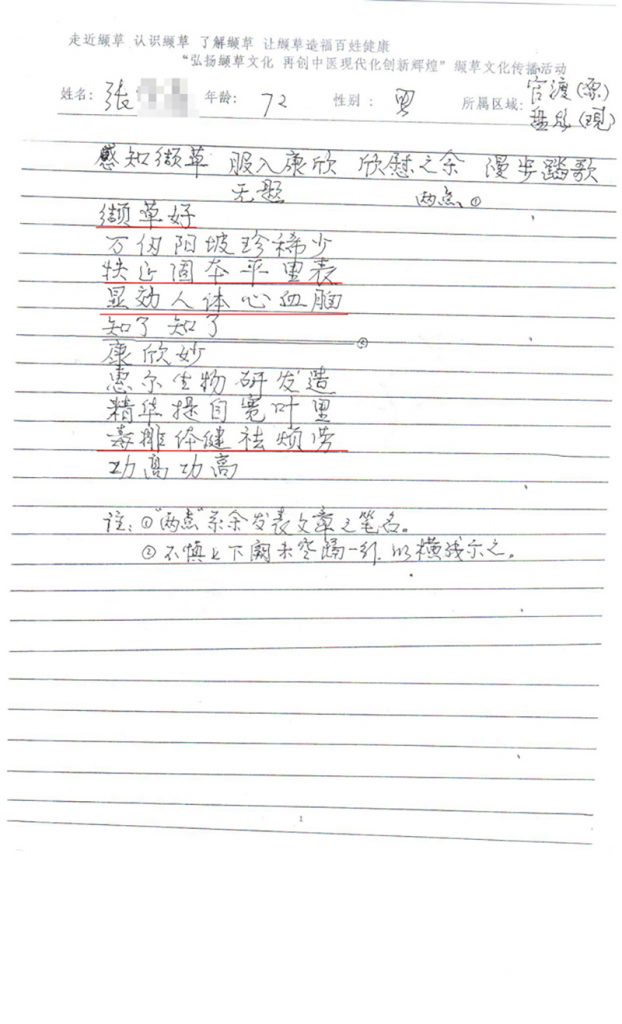 走近缬草 认识缬草 了解缬草 让缬草造福百姓健康
“弘扬缬草文化 再创中医现代化创新辉煌”缬草文化传播活动
姓名：张 年龄：72 性别：男 所属区域：官渡（原）
盘龙（现）
感知缬草 服入康欣 欣慰之余 漫步踏歌
无题 两点①
缬草好
万仞阳坡珍稀少
扶正固本平里表
显效人体心血脑
知了知了
②
康欣妙
惠尔生物研发造
精华提自宽叶里
毒排体健祛烦劳
功高功高
注：①“两点”系余发表文章之笔名。
②不慎上下阕未空隔一行，以横线示之。
1